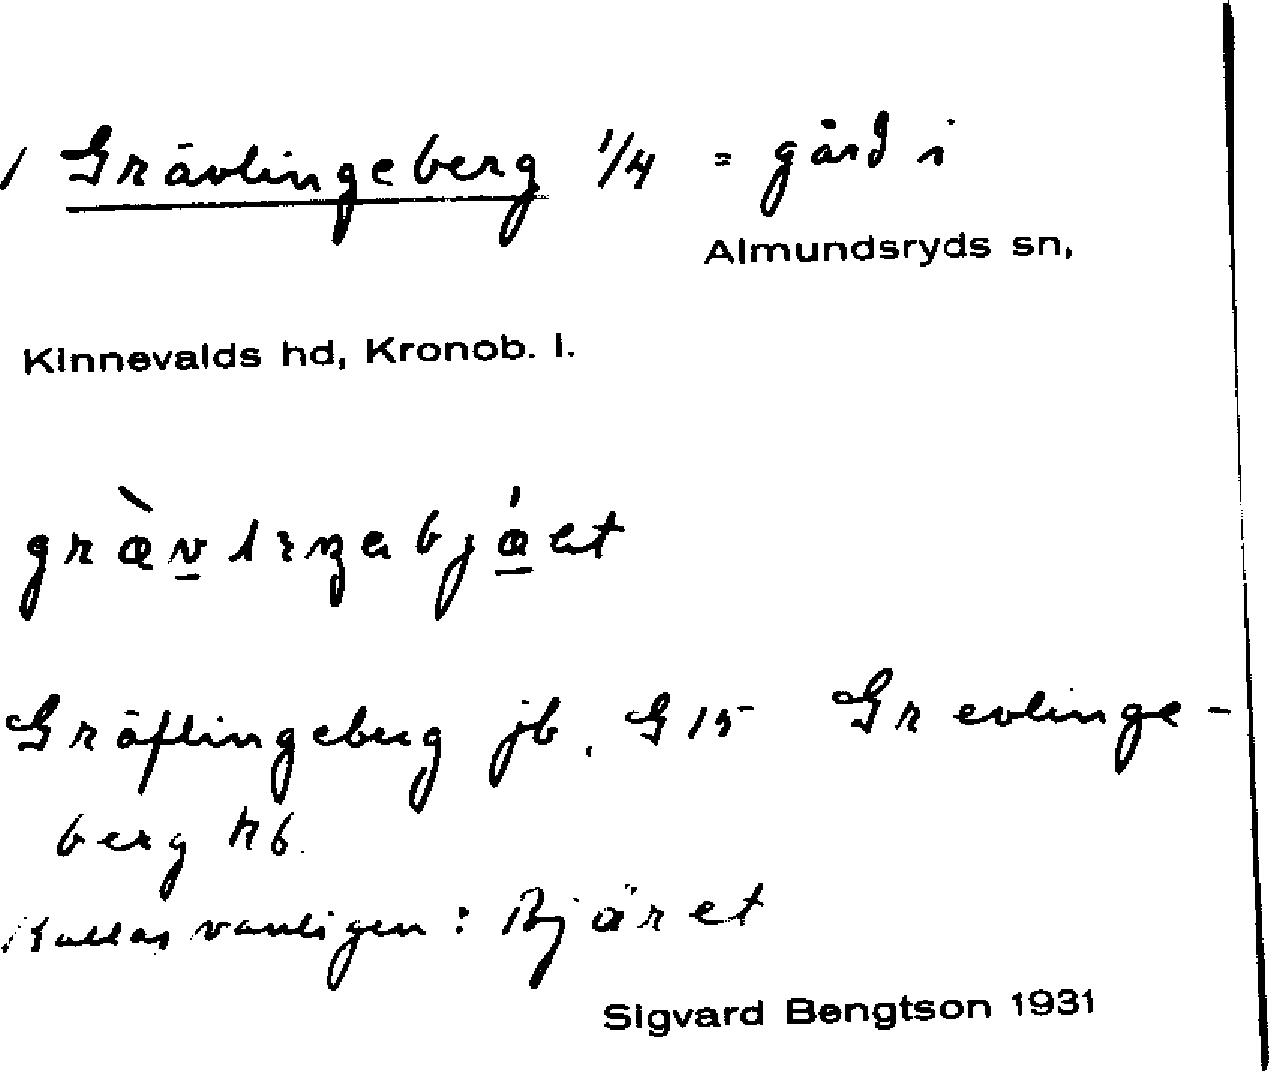 / Grävlingeberg 1/4 = gård i
Almundsryds sn,
Kinnevalds hd, Kronob. l.
Gräflingeberg jb. G 15 Grevlinge-
berg hb.
Kallas vanligen: Bjäret
Sigvard Bengtson 1931